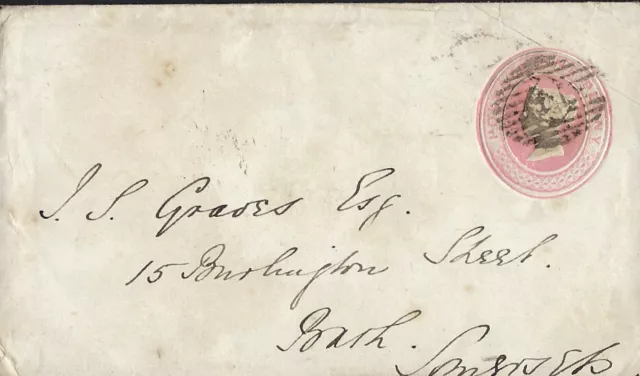 J. S. Graves Esq.
15 Burlington Street.
Bath.
Somerset